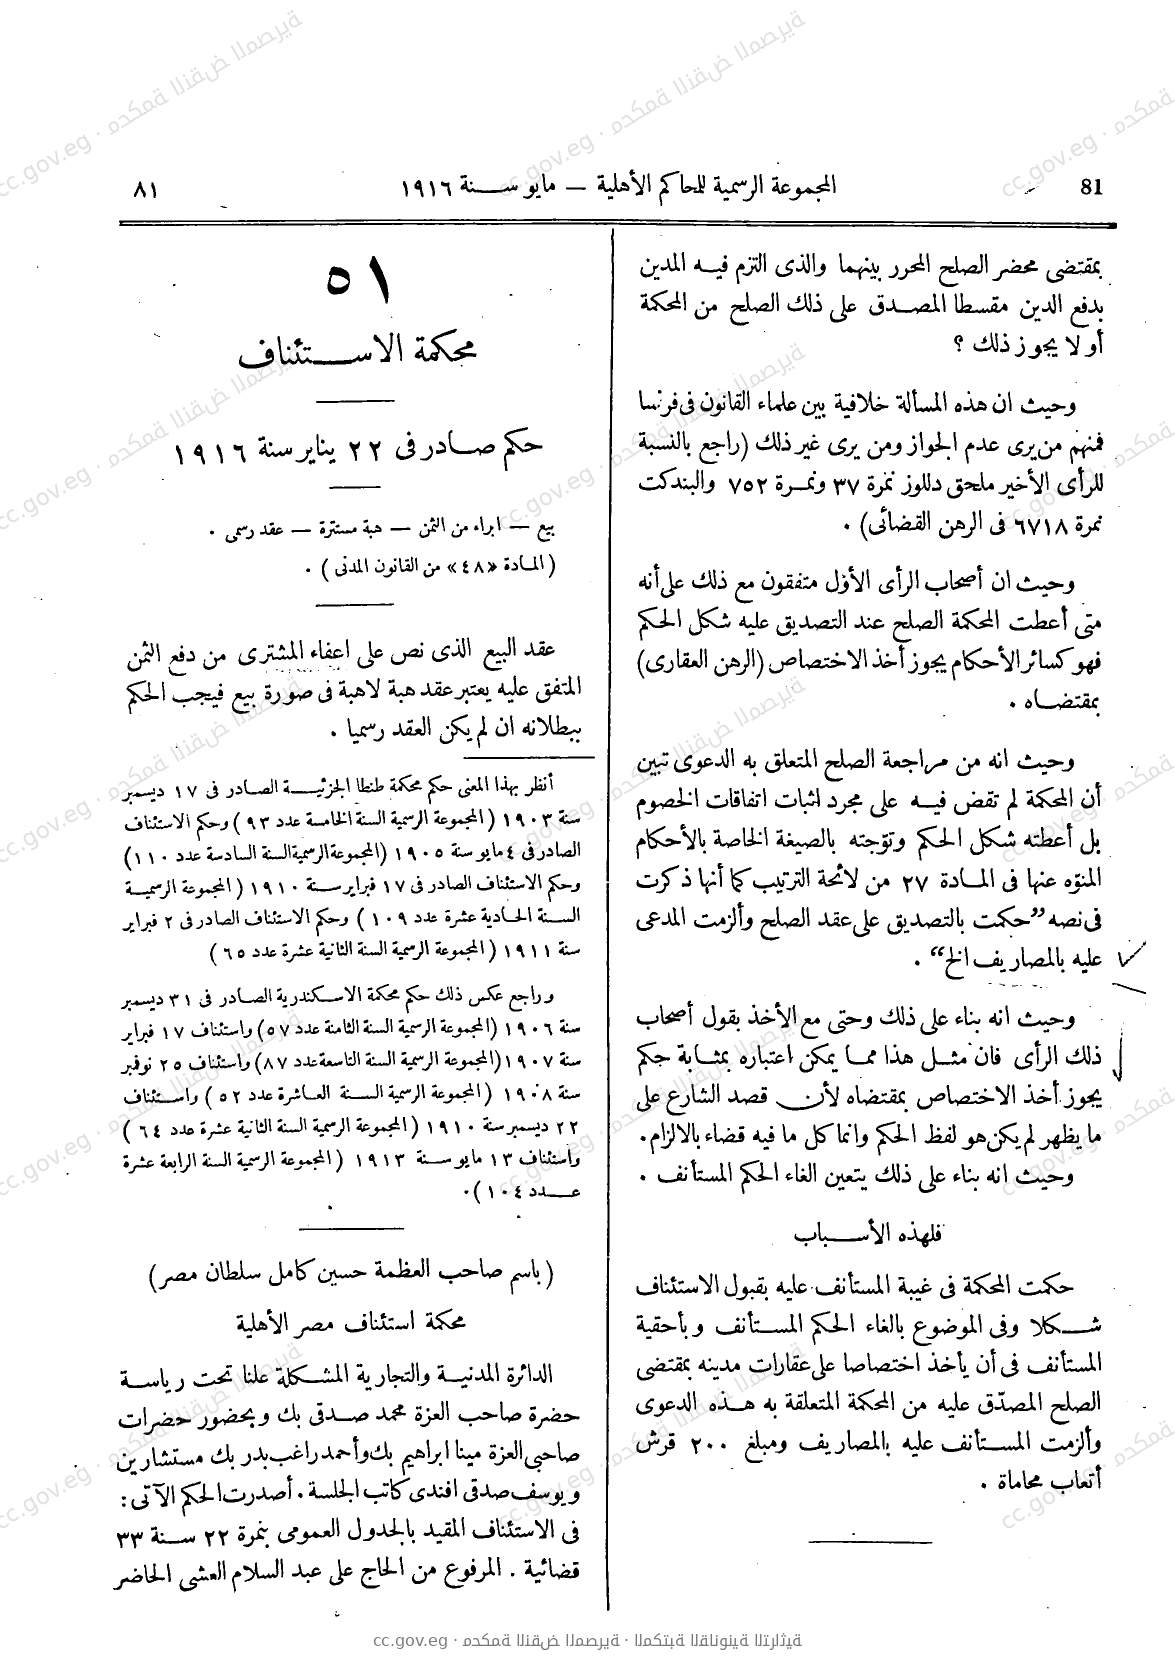 81
المجموعة الرسمية للمحاكم الأهلية — مايو سنة ١٩١٦
٨١
بمقتضى محضر الصلح المحرر بينهما والذى التزم فيه المدين
بدفع الدين مقسطا المصدق على ذلك الصلح من المحكمة
أو لا يجوز ذلك ؟
وحيث ان هذه المسألة خلافية بين علماء القانون فى فرنسا
فمنهم من يرى عدم الجواز ومن يرى غير ذلك (راجع بالنسبة
للرأى الأخير ملحق دللوز نمرة ٣٧ ونمرة ٧٥٢ والبندكت
نمرة ٦٧١٨ فى الرهن القضائى) .
وحيث ان أصحاب الرأى الأوّل متفقون مع ذلك على أنه
متى أعطت المحكمة الصلح عند التصديق عليه شكل الحكم
فهو كسائر الأحكام يجوز أخذ الاختصاص (الرهن العقارى)
بمقتضاه .
وحيث انه من مراجعة الصلح المتعلق به الدعوى تبين
أن المحكمة لم تقض فيه على مجرد اثبات اتفاقات الخصوم
بل أعطته شكل الحكم وتوّجته بالصيغة الخاصة بالأحكام
المنوّه عنها فى المادة ٢٧ من لائحة الترتيب كما أنها ذكرت
فى نصه ”حكمت بالتصديق على عقد الصلح وألزمت المدعى
عليه بالمصاريف الخ“ .
وحيث انه بناء على ذلك وحتى مع الأخذ بقول أصحاب
ذلك الرأى فان مثل هذا مما يمكن اعتباره بمثابة حكم
يجوز أخذ الاختصاص بمقتضاه لأن قصد الشارع على
ما يظهر لم يكن هو لفظ الحكم وانما كل ما فيه قضاء بالالزام.
وحيث انه بناء على ذلك يتعين الغاء الحكم المستأنف .
فلهذه الأسباب
حكمت المحكمة فى غيبة المستأنف عليه بقبول الاستئناف
شكلا وفى الموضوع بالغاء الحكم المستأنف وبأحقية
المستأنف فى أن يأخذ اختصاصا على عقارات مدينه بمقتضى
الصلح المصدّق عليه من المحكمة المتعلقة به هذه الدعوى
وألزمت المستأنف عليه بالمصاريف ومبلغ ٢٠٠ قرش
أتعاب محاماة .
٥١
محكمة الاستئناف
حكم صادر فى ٢٢ يناير سنة ١٩١٦
بيع — ابراء من الثمن — هبة مستترة — عقد رسمى .
(المادة «٤٨» من القانون المدنى ) .
عقد البيع الذى نص على اعفاء المشترى من دفع الثمن
المتفق عليه يعتبر عقد هبة لاهبة فى صورة بيع فيجب الحكم
ببطلانه ان لم يكن العقد رسميا .
أنظر بهذا المعنى حكم محكمة طنطا الجزئية الصادر فى ١٧ ديسمبر
سنة ١٩٠٣ (المجموعة الرسمية السنة الخامسة عدد ٩٣ ) وحكم الاستئناف
الصادر فى ٤ مايو سنة ١٩٠٥ (المجموعة الرسمية السنة السادسة عدد ١١٠)
وحكم الاستئناف الصادر فى ١٧ فبراير سنة ١٩١٠ (المجموعة الرسمية
السنة الحادية عشرة عدد ١٠٩ ) وحكم الاستئناف الصادر فى ٢ فبراير
سنة ١٩١١ (المجموعة الرسمية السنة الثانية عشرة عدد ٦٥ )
وراجع عكس ذلك حكم محكمة الاسكندرية الصادر فى ٣١ ديسمبر
سنة ١٩٠٦ (المجموعة الرسمية السنة الثامنة عدد ٥٧) واستئناف ١٧ فبراير
سنة ١٩٠٧ (المجموعة الرسمية السنة التاسعة عدد ٨٧) واستئناف ٢٥ نوفمبر
سنة ١٩٠٨ (المجموعة الرسمية السنة العاشرة عدد ٥٢ ) واستئناف
٢٢ ديسمبر سنة ١٩١٠ (المجموعة الرسمية السنة الثانية عشرة عدد ٦٤ )
واستئناف ١٣ مايو سنة ١٩١٣ (المجموعة الرسمية السنة الرابعة عشرة
عدد ١٠٤).
(باسم صاحب العظمة حسين كامل سلطان مصر)
محكمة استئناف مصر الأهلية
الدائرة المدنية والتجارية المشكلة علنا تحت رياسة
حضرة صاحب العزة محمد صدقى بك وبحضور حضرات
صاحبى العزة مينا ابراهيم بك وأحمد راغب بدر بك مستشارين
ويوسف صدقى افندى كاتب الجلسة . أصدرت الحكم الآتى :
فى الاستئناف المقيد بالجدول العمومى بنمرة ٢٢ سنة ٣٣
قضائية . المرفوع من الحاج على عبد السلام العشى الحاضر
cc.gov.eg · محكمة النقض المصرية · المكتبة القانونية التراثية